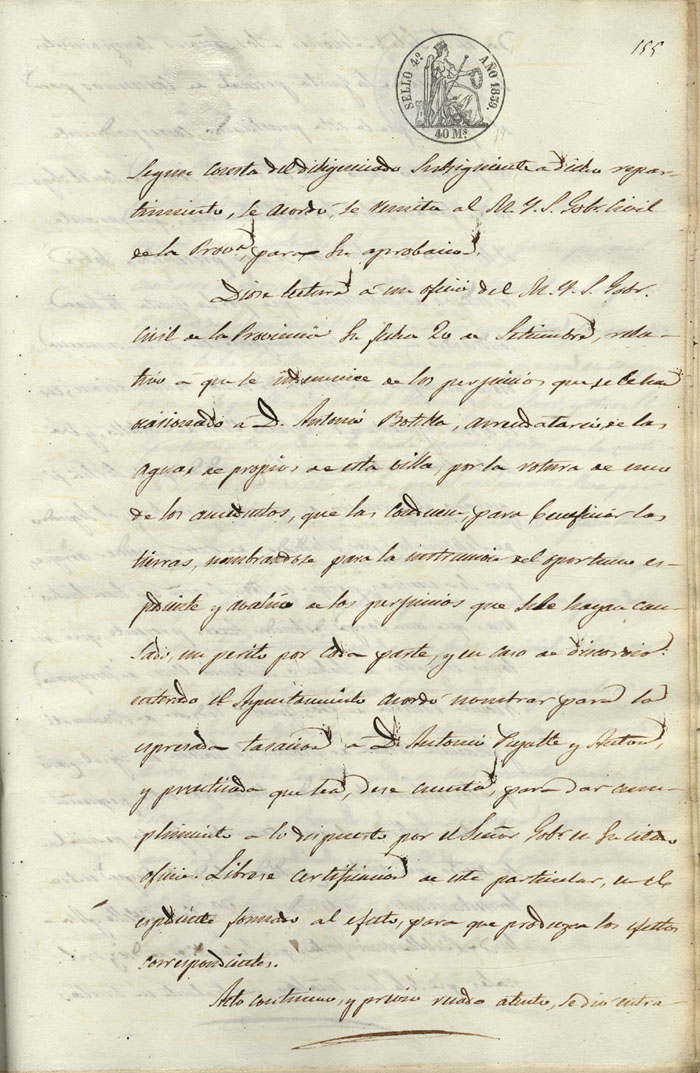 155
SELLO 4º AÑO 1859.
40 Ms
Segun consta del diligenciado subsiguiente a dicho repar-
timiento, se acordó, se remita al M. Y. S. Gobr. Civil
de la Prova. para su aprobacion.
Diose lectura á un oficio del M. Y. S. Gobr.
Civil de la Provincia su fecha 20 de Setiembre, rela-
tivo á que se indemnice de los perjuicios que se le ha
ocasionado á D. Antonio Botella, arrendatario de las
aguas de propios de esta villa, por la rotura de uno
de los aueductos, que las conducen para beneficiar las
tierras, nombrandose para la instruccion del oportuno es-
pediente y avaluo de los perjuicios que se le hayan cau-
sado, un perito por cada parte, y en caso de discordia:
enterado el Ayuntamiento acordó nombrar para la
espresada tasacion á D. Antonio y Antón,
y practicada que sea, dese cuenta, para dar cum-
plimiento a lo dispuesto por el Señor Gobr. en su citado
oficio. Librese certificacion de este particular, en el
espediente formado al efecto, para que produzca los efectos
correspondientes.
Acto continuo, y previo recado atento, se dió entra-